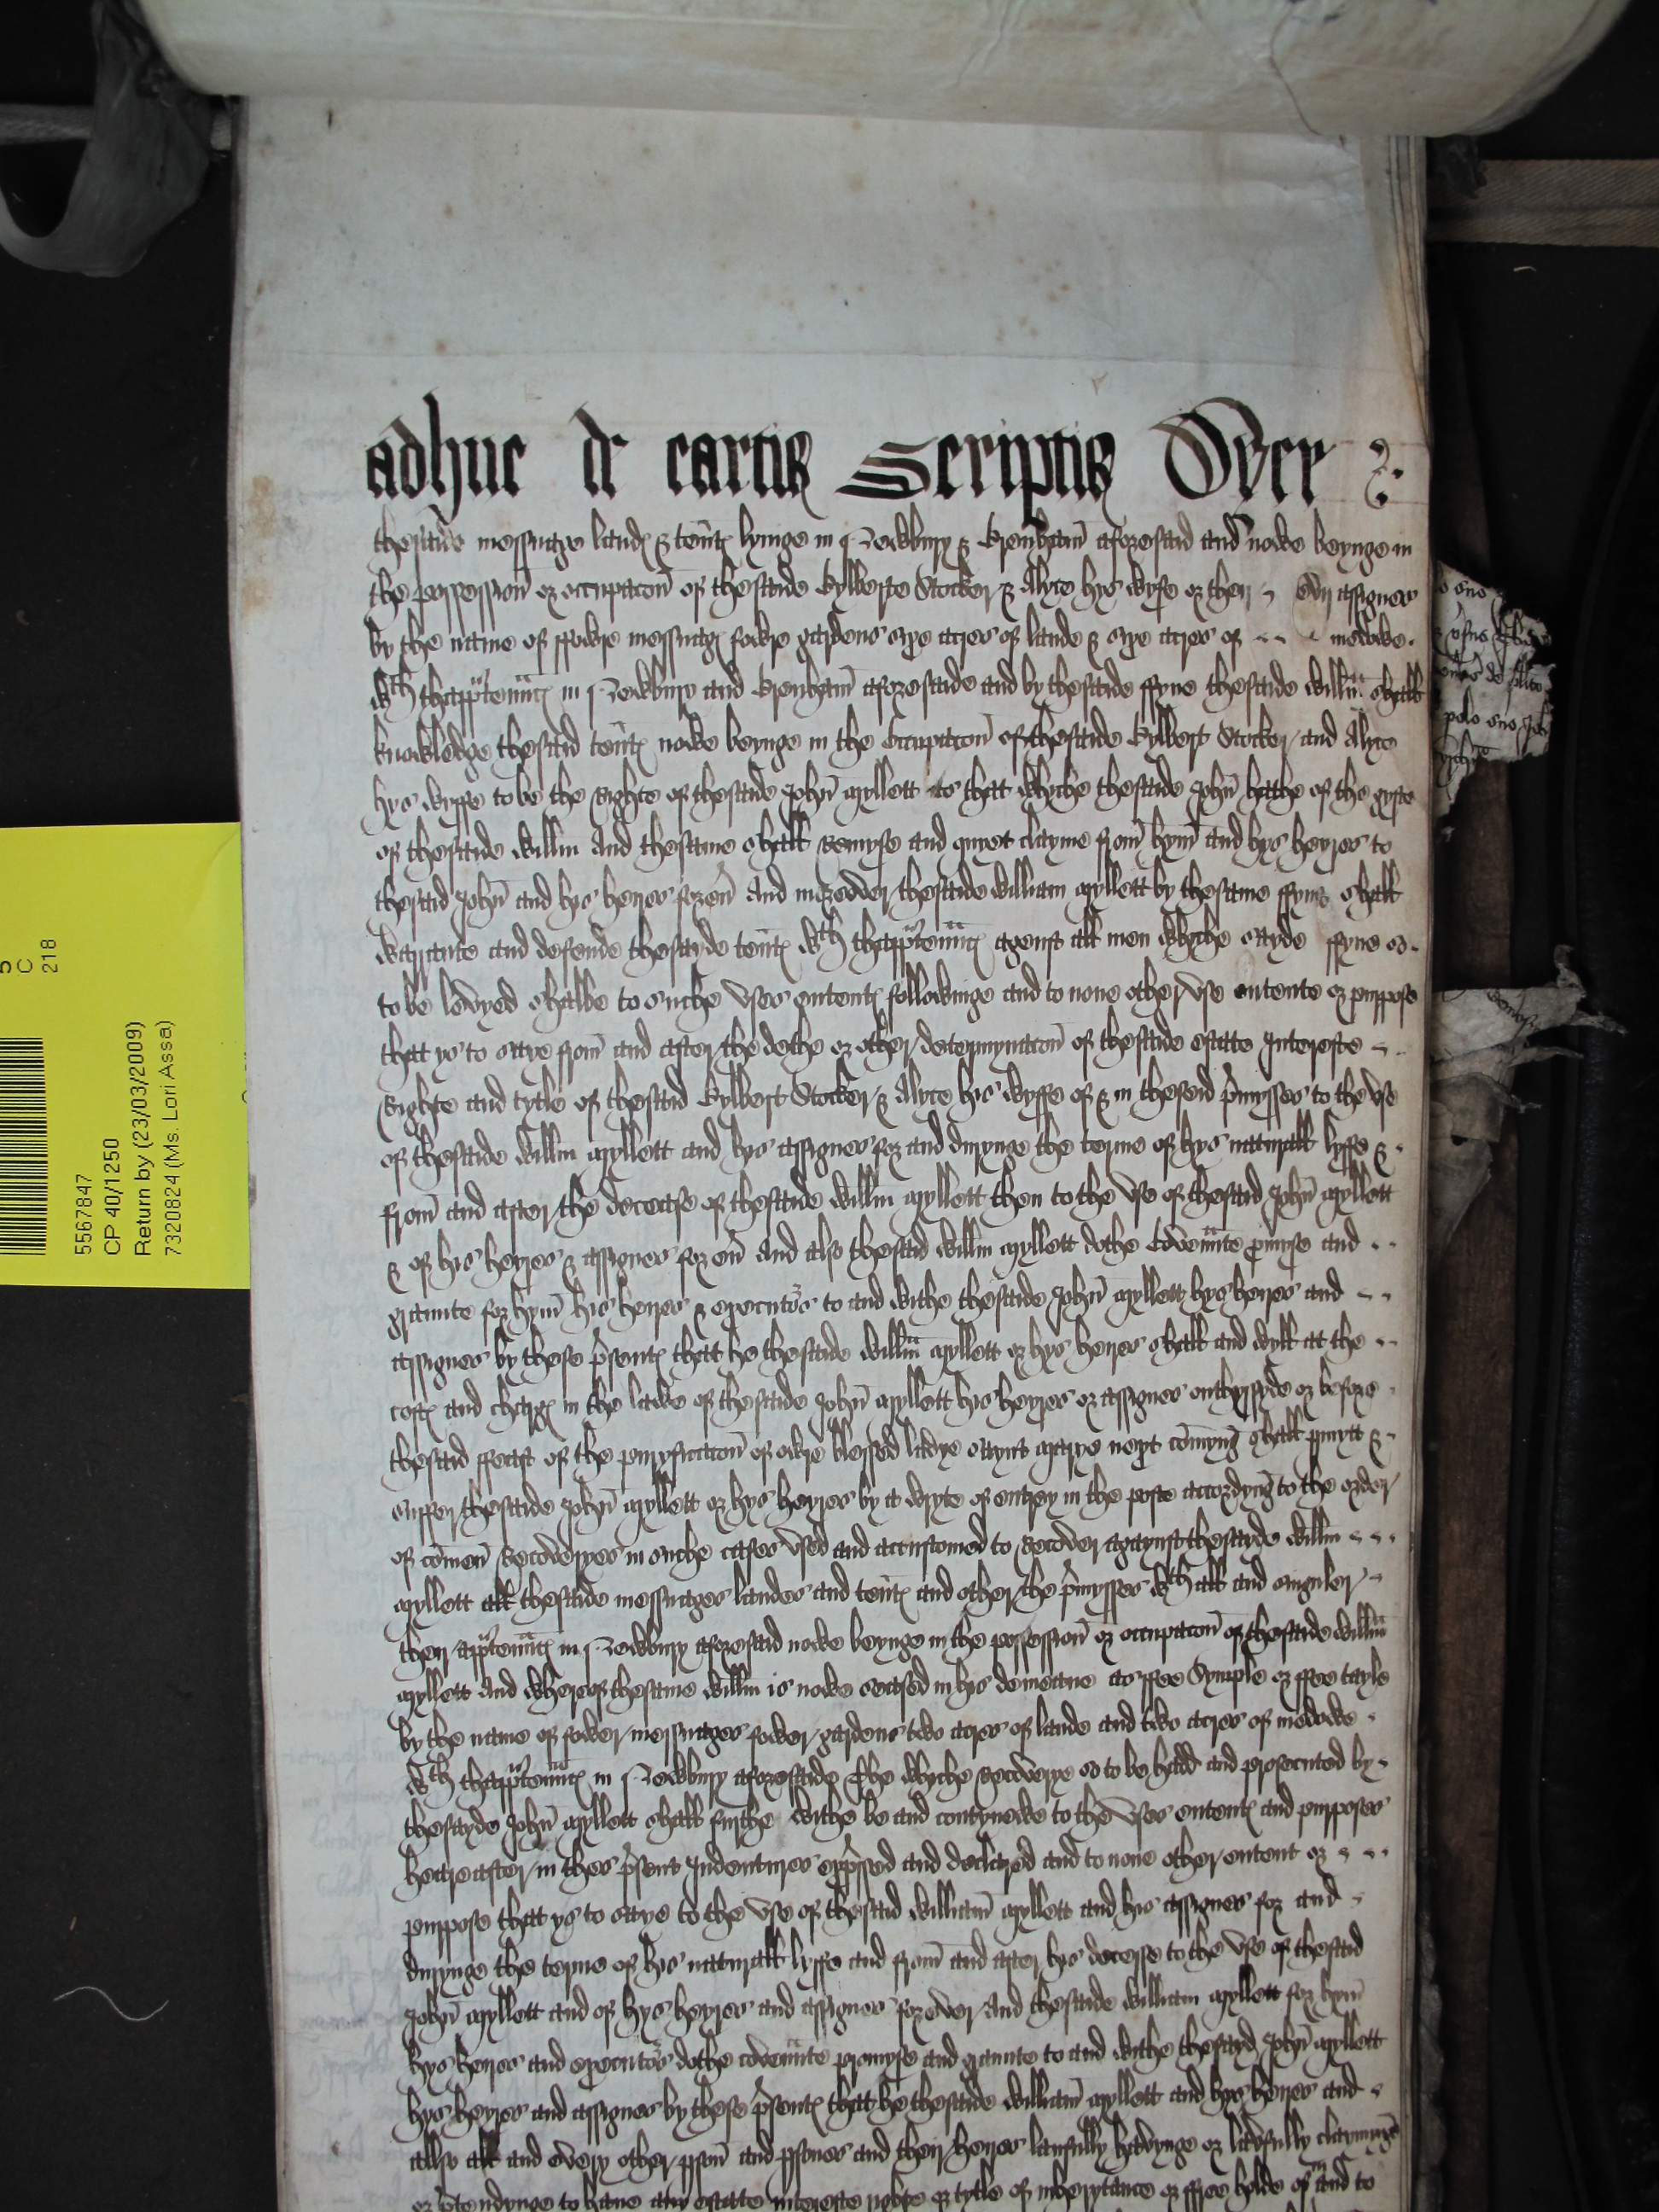 adhuc de cartis Scriptis
thesaide messuage landꝭ & tentꝭ lyinge in Newbury & Grenham aforesaid and nowe beynge in
the possession or occupacon of thesaide Gylberte Stocker & Alyce hys wyfe or their assignes
by the name of ffowre messuagꝭ fowre gardens syxe acres of lande & syxe acres of medowe
wth thapprtennncꝭ in Newbury and Grenham aforesaide and by thesaide ffyne thesaide Willm shall
knowledge thesaid tentꝭ nowe beynge in the Occupacon of thesaide Gylbert Stocker and Alyce
hys wyffe to be the Righte of thesaide John Myllett as that whiche thesaide John hathe of the gyfte
of thesaide Willm And thesame shall remyse and quyet clayme from hym and hys heyres to
thesaid John and hys heires forevr And moreover thesaide William Myllett by thesame ffyne shall
warrante and defende thesayde tentꝭ wth thapprtennncꝭ agenst all men Whyche sayde ffyne so
to be levyed shalbe to suche uses ententꝭ followinge and to none other use entente or purpose
that ys to saye from and after the dethe or other determynacon of thesaide estate Intereste
Righte and tytle of thesaid Gylbert Stocker & Alyce his wyffe of & in theseid pmysses to the use
of thesaide Willm Myllett and hys assignes for and durynge the terme of hys naturall lyffe &
from and after the decease of thesaide Willm Myllett then to the use of thesaid John Myllett
& of his heyres & assignes for evr And also thesaid Willm Myllett dothe Covennte promyse and
graunte for hym his heires & executors to and withe thesaide John Myllett hys heires and
assignes by these psentꝭ that he thesaide Willm Myllett or hys heires shall and wyll at the
costꝭ and chargꝭ in the lawe of thesaide John Myllett his heyres or assignes onthyssyde or before
thesaid ffeast of the puryficacon of owre blessed ladye saynt Marye next comyng shall pmytt &
suffer thesaide John Myllett or hys heyres by a wryte of entrey in the poste accordyng to the order
of comen Recoveryes in suche cases used and accustomed to Recover agaynst thesayde Willm
Myllett all thesaide messuages landes and tentꝭ and other the pmysses wth all and singuler
their apprtennncꝭ in Newbury aforesaid nowe beynge in the possession or occupacon of thesaide Willm
Myllett And whereof thesame Willm is nowe seased in his demeane as ffee Symple or ffee tayle
by the name of fower messuages fower gardens two acres of lande and two acres of medowe
wth thapprtennncꝭ in Newbury aforesaide The whyche Recoverye so to be hadd and prosecuted by
thesayde John Myllett shall furthe withe be and contynewe to the uses ententꝭ and purposes
heareafter in thes psent Indentures expssed and declared and to none other entent or
purpose that ys to saye to the use of thesaid William Myllett and his assignes for and
durynge the terme of his naturall lyffe and from and after hys decesse to the use of thesaid
John Myllett and of hys heyres and assignes forever And thesaide William Myllett for hym
hys heires and executors dothe covennte promyse and graunte to and withe thesayd John Myllett
hys heyres and assignes by these psentꝭ that he thesaide William Myllett and hys heires and
allso all and every other pson and psones and their heires laufully havynge or lawfully claymynge
or ptendynge to have any estate intereste righte or tytle of inherytance or ffree holde of in and to
5567847
CP 40/1250
Return by (23/03/2009)
7320824 (Ms. Lori Assa)
C
218